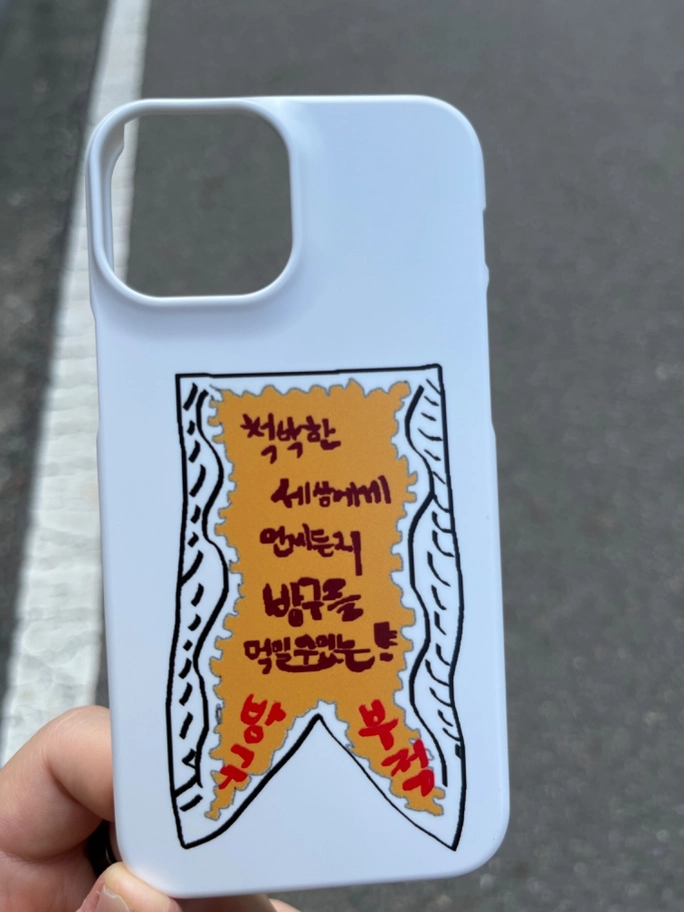 척박한
세상에게
언제든지
방구를
먹일수있는!!
방구
부적